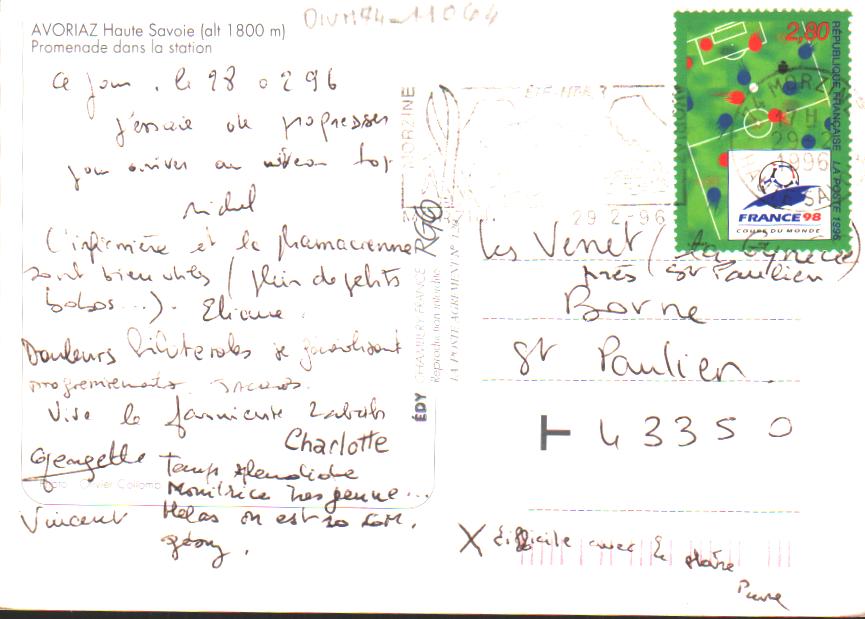 AVORIAZ Haute Savoie (alt 1800 m)
Promenade dans la station
ce jour, le 28 02 96
J'essaie de progresser
pour arriver au niveau top
Michel
L'infirmière et la pharmacienne
sont bien utiles (plein de petits
bobos...). Eliane.
Douleurs bilaterales se
Jacques.
Vive le farniente
Charlotte
Georgette
Temps splendide
Monitrice tres jeune...
Vincent Helas on est 20
Photo : Olivier Collomb
EDY CHAMBERY-FRANCE
Reproduction interdite
LA POSTE AGREMENT N°
MORZINE
29 2-96
2,80
RÉPUBLIQUE FRANÇAISE LA POSTE 1996
FRANCE 98
COUPE DU MONDE
MORZINE
17H
29 2
1996
Les Venet (
près St Paulien)
Borne
St Paulien.
T 43350
X difficile avec le
Pierre